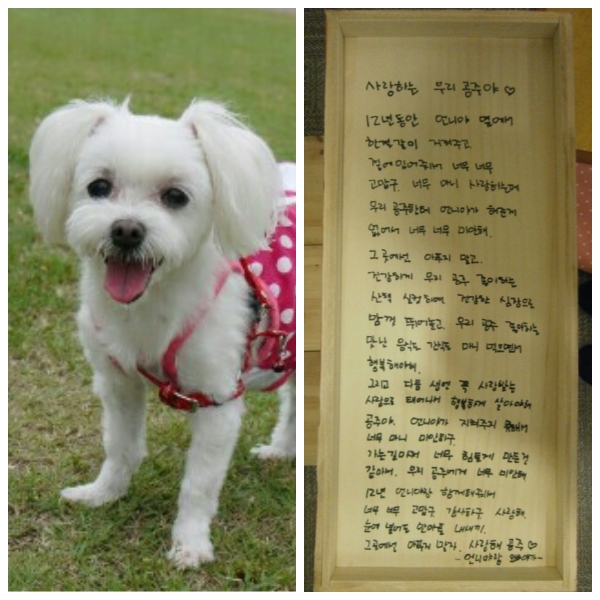 사랑하는 우리 공주야 ♡
12년동안 언니야 옆에서
한결같이 지켜주고
곁에 있어주어서 너무 너무
고맙구. 너무 마니 사랑하는데
우리 공주한테 언니야가 해준게
없어서 너무 너무 미안해.
그곳에선 아푸지 말고.
건강하게 우리 공주 좋아하는
산책 실컷하며 건강한 심장으로
맘껏 뛰어놀고. 우리 공주 좋아하는
맛난 음식도 간식도 마니 먹으면서
행복해야해.
그리고 다음 생엔 꼭 사랑받는
사람으로 태어나서 행복하게 살아야해
공주야. 언니야가 지켜주지 못해서
너무 마니 미안하구.
가는길마저 너무 힘들게 만든것
같아서. 우리 공주에게 너무 미안해
12년 언니야랑 함께해줘서
너무 너무 고맙구 감사하구 사랑해.
눈에 넣어도 안아플 내새끼.
그곳에선 아푸지 말자. 사랑해 공주 ♡
-언니야랑